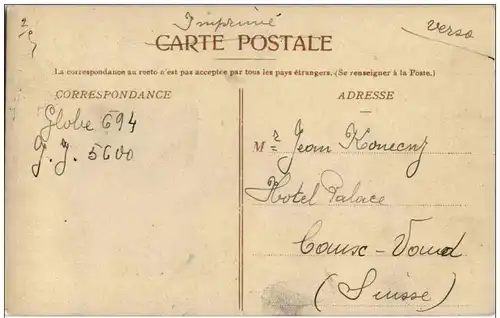 Imprimé
verso
CARTE POSTALE
La correspondance au recto n'est pas acceptée par tous les pays étrangers. (Se renseigner à la Poste.)
CORRESPONDANCE
Globe 694
J. J. 5600
ADRESSE
Mr Jean Konecny
Hotel Palace
Caux-Vaud
(Suisse)